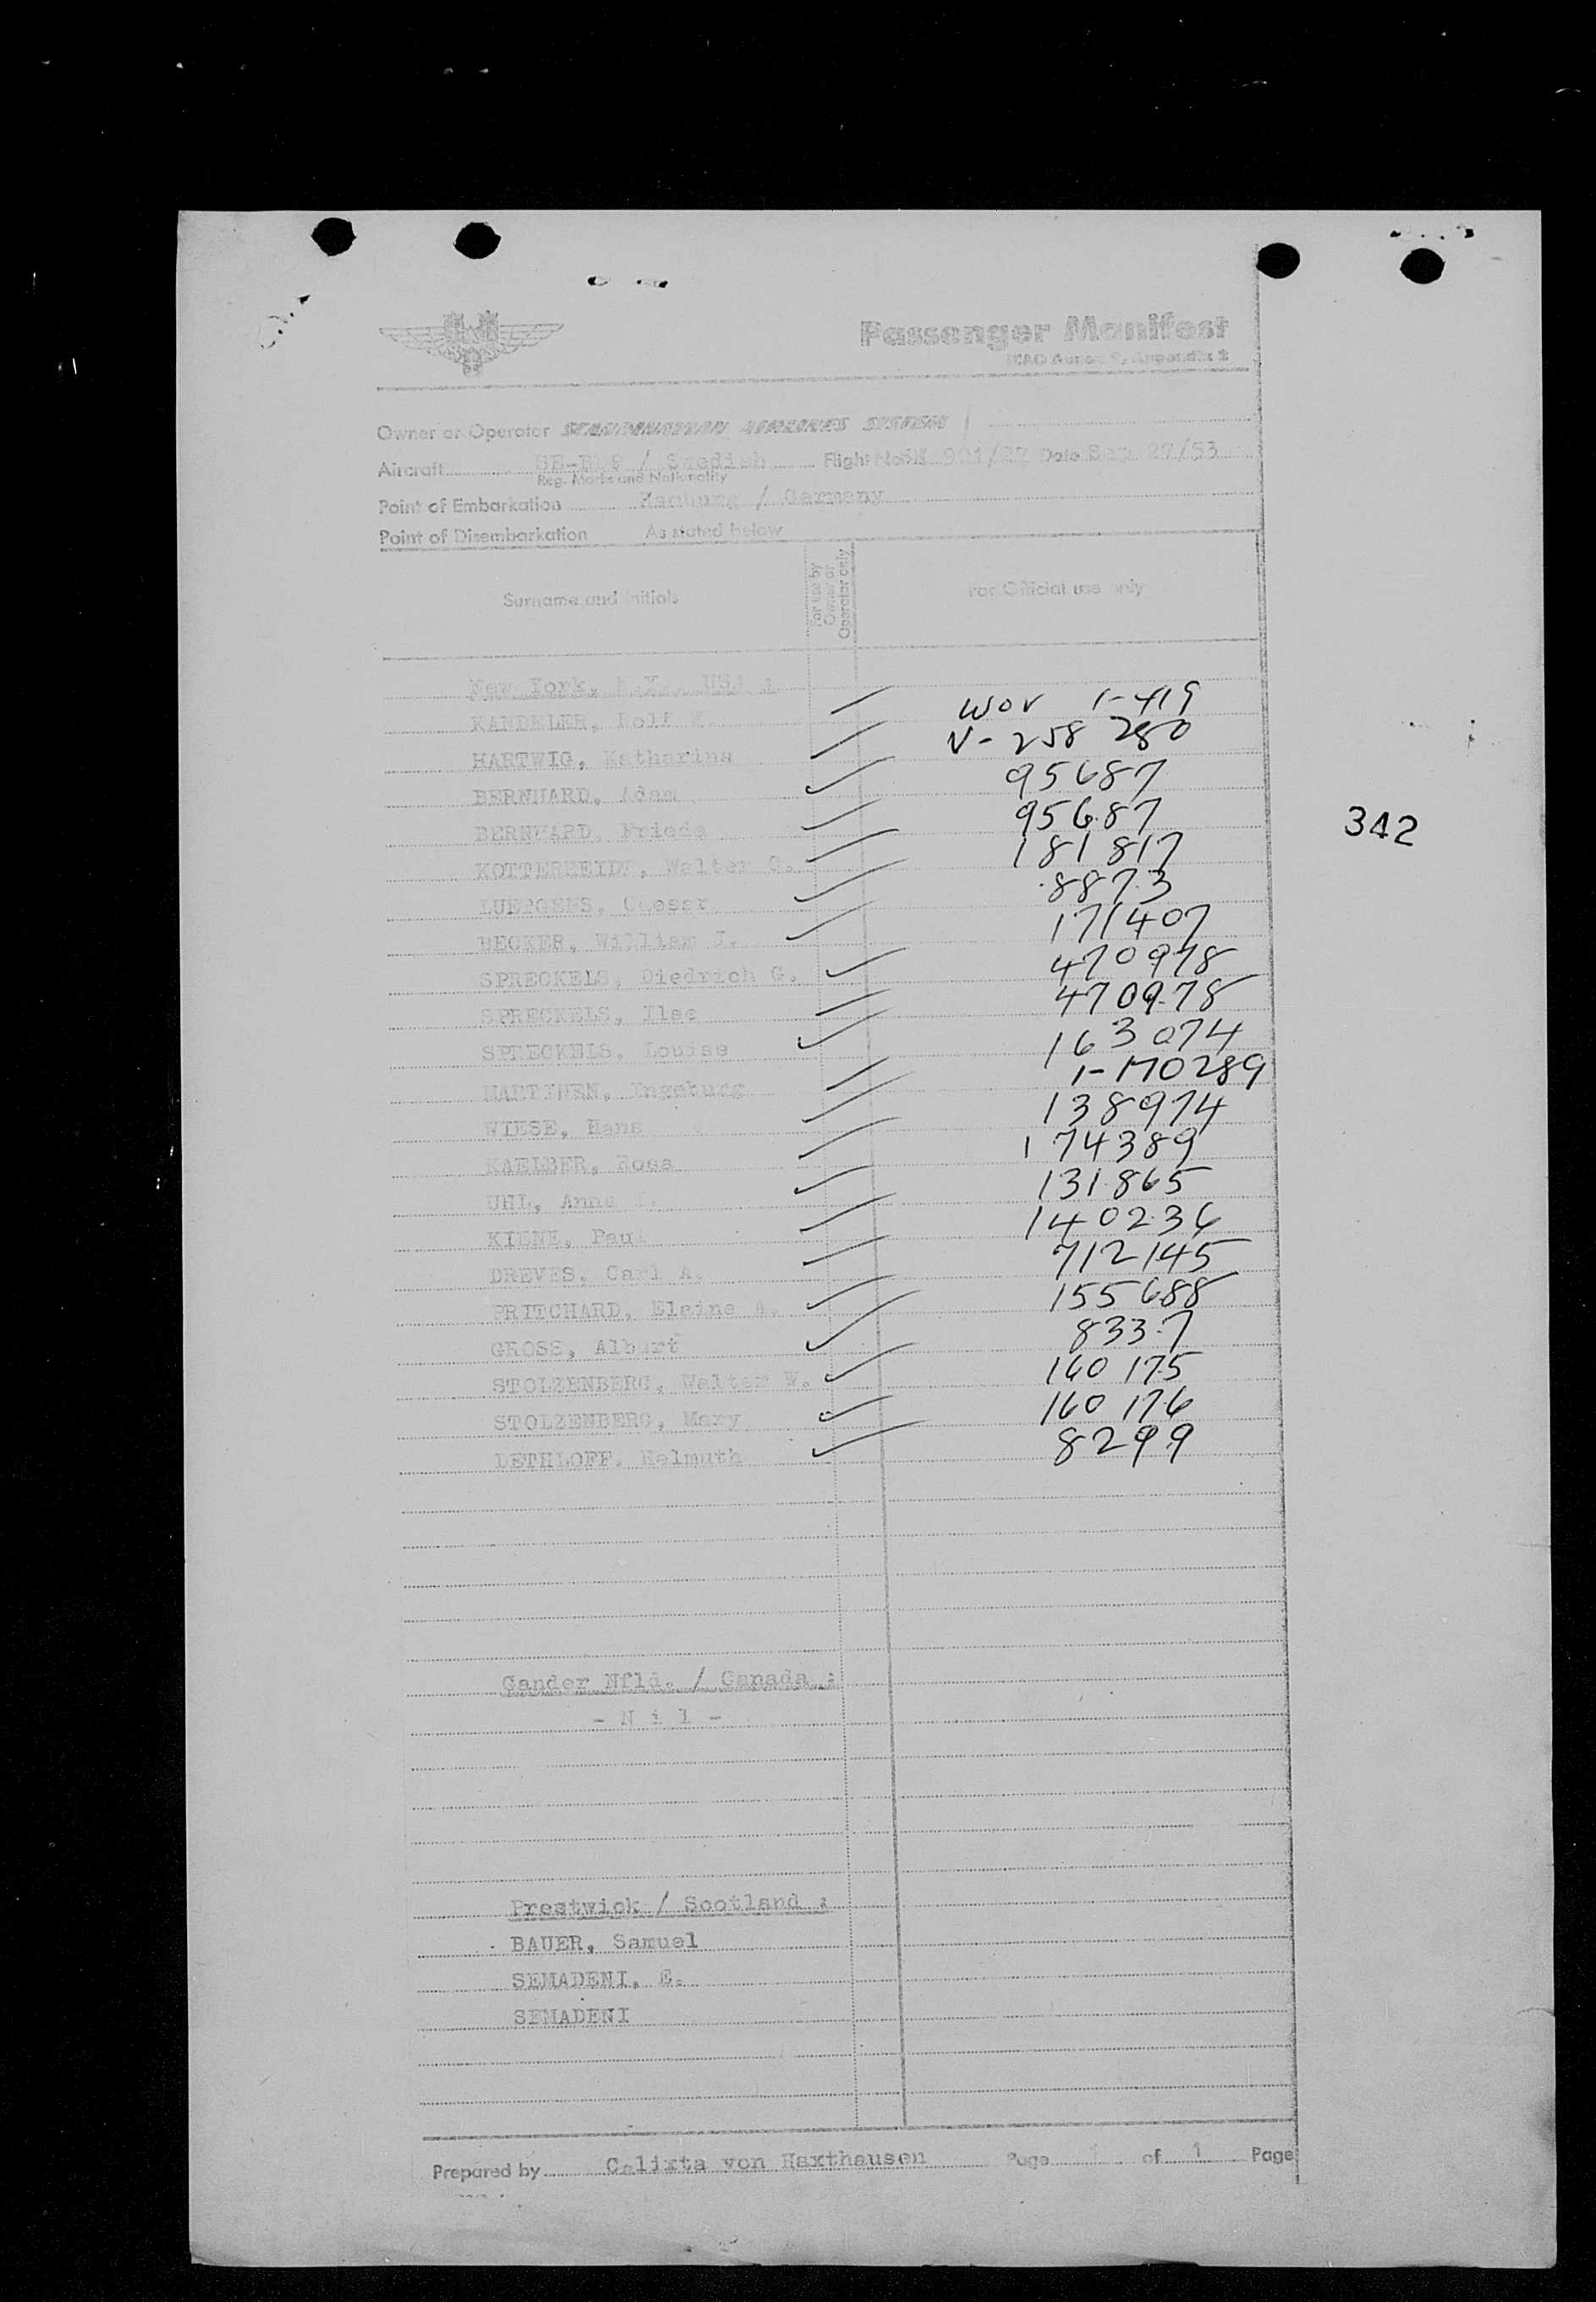 Passenger Manifest
ICAO Annex 9, Appendix 2
Owner or Operator SCANDINAVIAN AIRLINES SYSTEM
Aircraft / Swedish Flight No SK 901/27 Date Sep 27/53
Reg. Marks and Nationality
Point of Embarkation Hamburg / Germany
Point of Disembarkation As stated below
Surname and initials For use by Owner or Operator only For Official use only
New York, N.Y., USA :
KANDELER, Rolf WOV 1-419
HARTWIG, Katharina V-258 280
BERNHARD, Adam 95687
BERNHARD, Frieda 95687
KOTTERHEIDT, Walter G. 181 817
LUERGENS, Caesar 8873
BECKER, William J. 171407
SPRECKELS, Diedrich G. 470978
SPRECKELS, Ilse 470978
SPRECKELS, Louise 163074
MARTINEN, Ingeburg 1-170289
WIESE, Hans 138974
KAELBER, Rosa 174389
UHL, Anna 131865
KIENE, Paul 140236
DREVES, Carl A. 712145
PRITCHARD, Elaine A. 155688
GROSS, Albert 8337
STOLZENBERG, Walter W. 160 175
STOLZENBERG, Mary 160 176
DETHLOFF, Helmuth 8299
342
Gander Nfld. / Canada :
- N i l -
Prestwick / Scotland :
BAUER, Samuel
SEMADENI, E.
SEMADENI
Prepared by Calixta von Haxthausen Page 1 of 1 Page